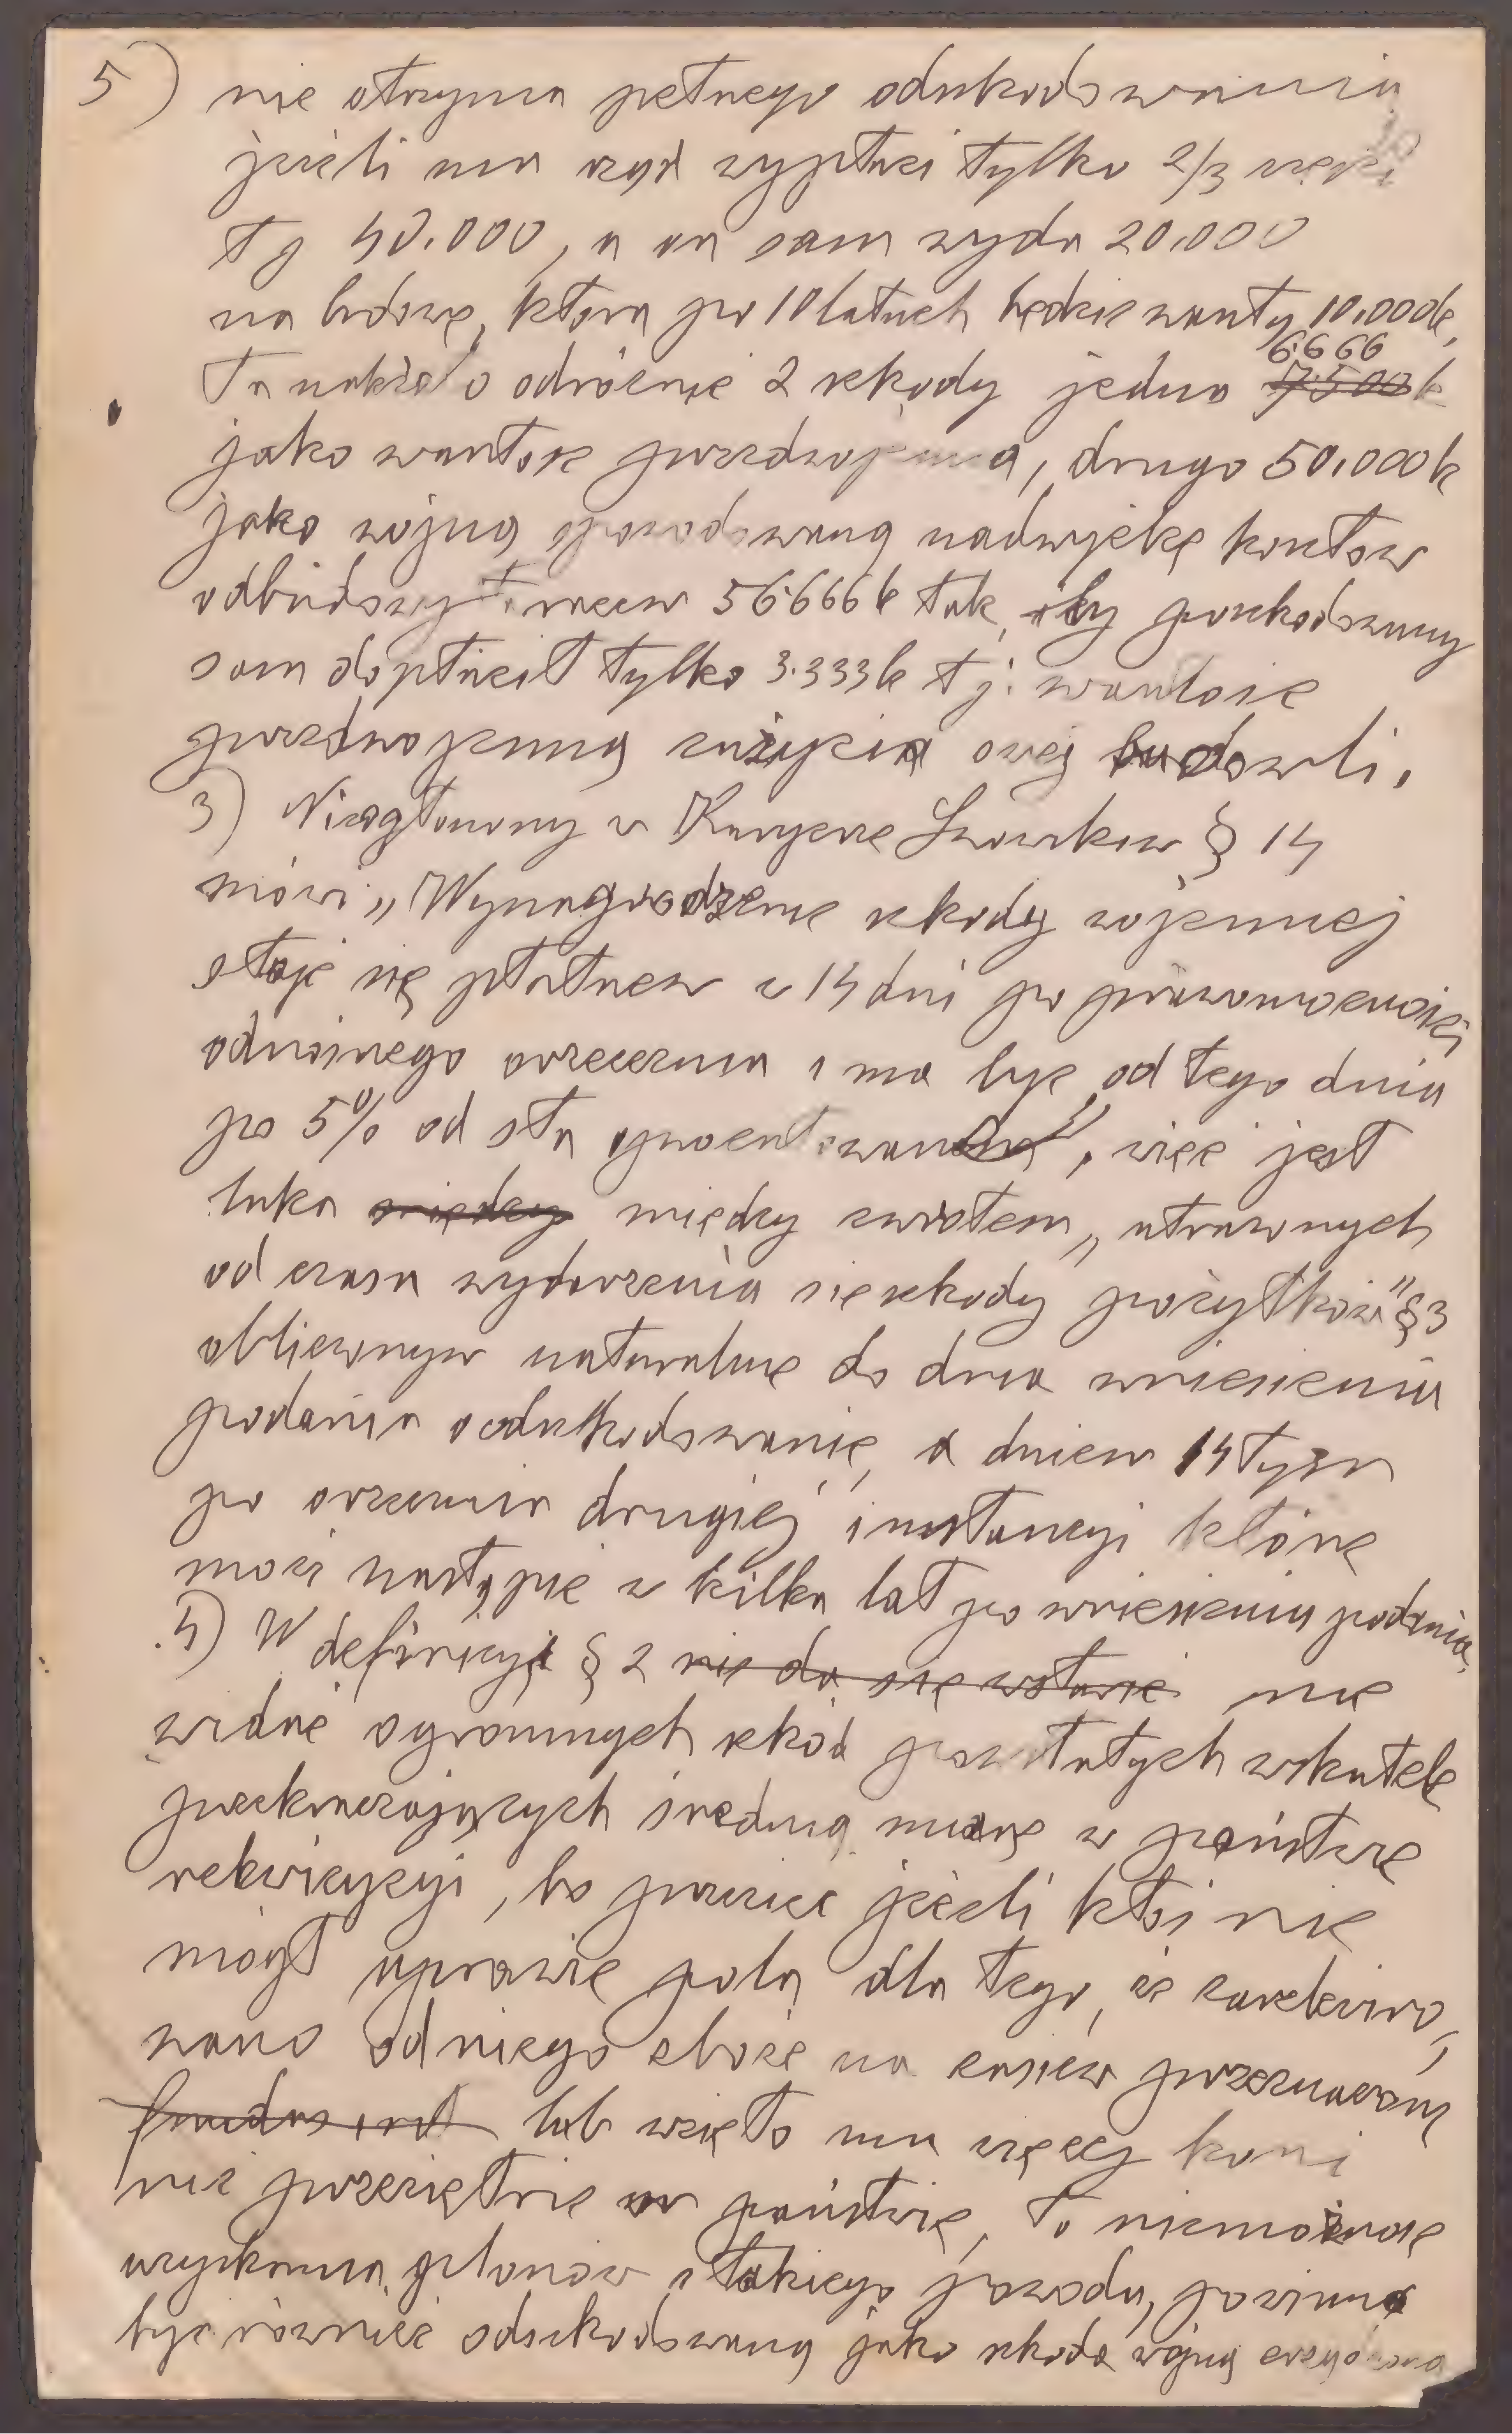 5) nie otrzyma pełnego odszkodowania
jeżeli mu rząd wypłaci tylko 2/3 części
tj 40.000, a on sam wyda 20.000
na budowę, która po 10 latach będzie warta 10.000 k,
Tu należało odróżnić 2 szkody jedną 6.666 7.500 k
jako wartość przedwojenną, drugą 50.000 k
jako wojną spowodowaną nadwyżkę kosztów
odbudowy t. razem 56.666 k tak, aby poszkodowany
sam dopłacił tylko 3.333 k tj. wartość
przedwojenną zużycia owej budowli.
3) Nieogłoszony w Kuryerze Lwowskim § 14
mówi „Wynagrodzenie szkody wojennej
staje się płatnem w 14 dni po prawomocności
odnośnego orzeczenia i ma być od tego dnia
po 5% od sta oprocentowane", więc jest
luka między między zwrotem „utraconych
od czasu wydarzenia się szkody pożytków" § 3
obliczonym naturalnie do dnia wniesienia
podania o odszkodowanie, a dniem 14tym
po orzeczeniu drugiej instancyi które
może nastąpić w kilka lat po wniesieniu podania.
4) W definicyi § 2 nie da się wstawić nie
widać ogromnych szkód powstałych wskutek
przekraczających średnią miarę w państwie
rekwizycyi, bo przecież jeżeli ktoś nie
mógł uprawić pola dla tego, że zarekwiro-
wano od niego zboże na zasiew przeznaczone
lub wzięto mu więcej koni
niż przeciętnie w państwie, to niemożność
uzyskania plonów z takiego powodu, powinna
być również odszkodowaną jako szkoda wojną